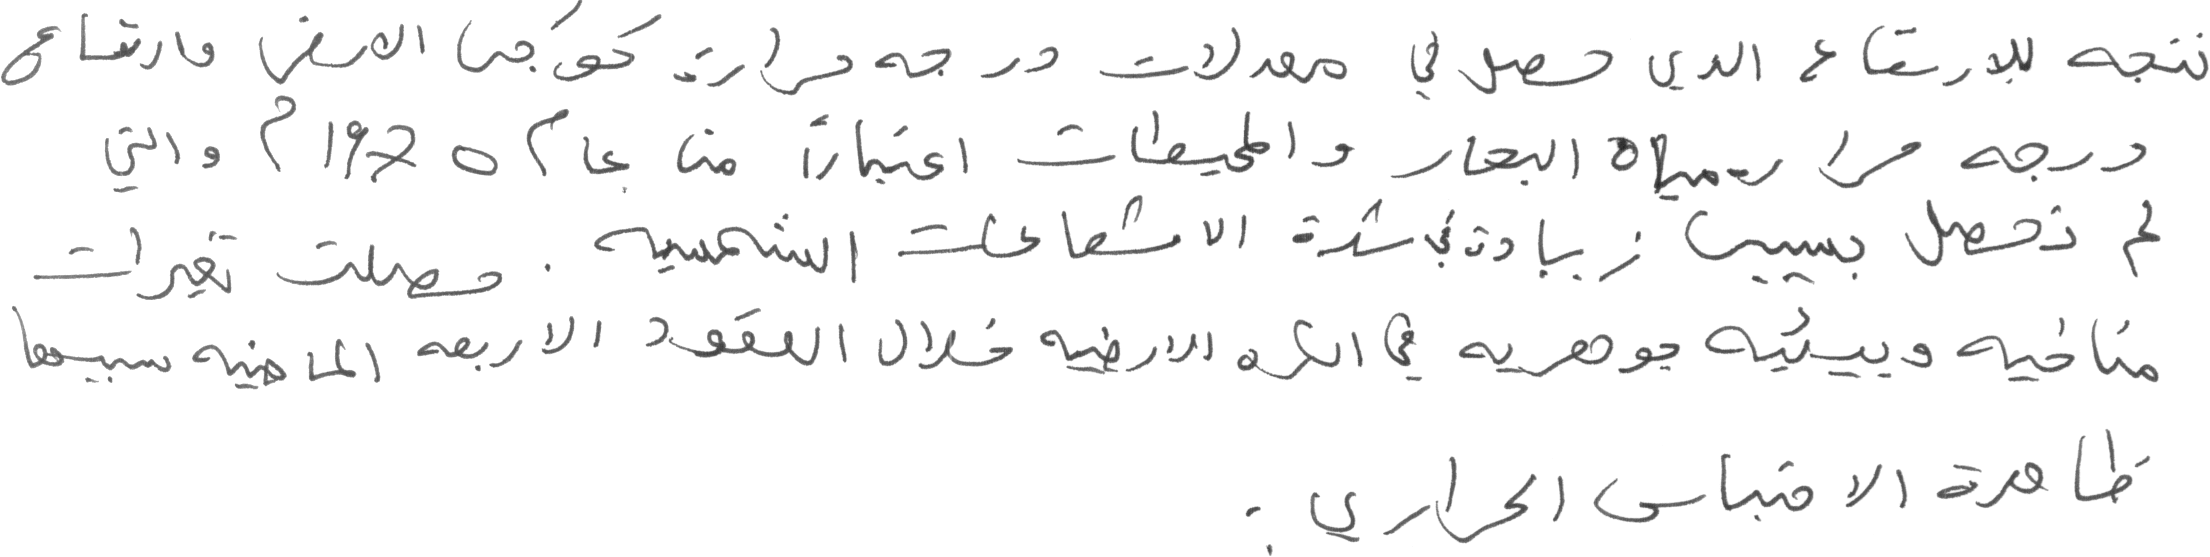 نتجه للارتفاع الذي حصل في معدلات درجه حرارة كوكب الارض وارتفاع
درجه حرارة مياه البحار والمحيطات اعتباراً من عام 1970 م والتي
لم تحصل بسبب زيادة في شدة الاشعاعات الشمسيه . حصلت تغيرات
مناخيه وبيئيه جوهريه في الكره الارضيه خلال العقود الاربعه الماضيه سببها
ظاهرة الاحتباس الحراري :